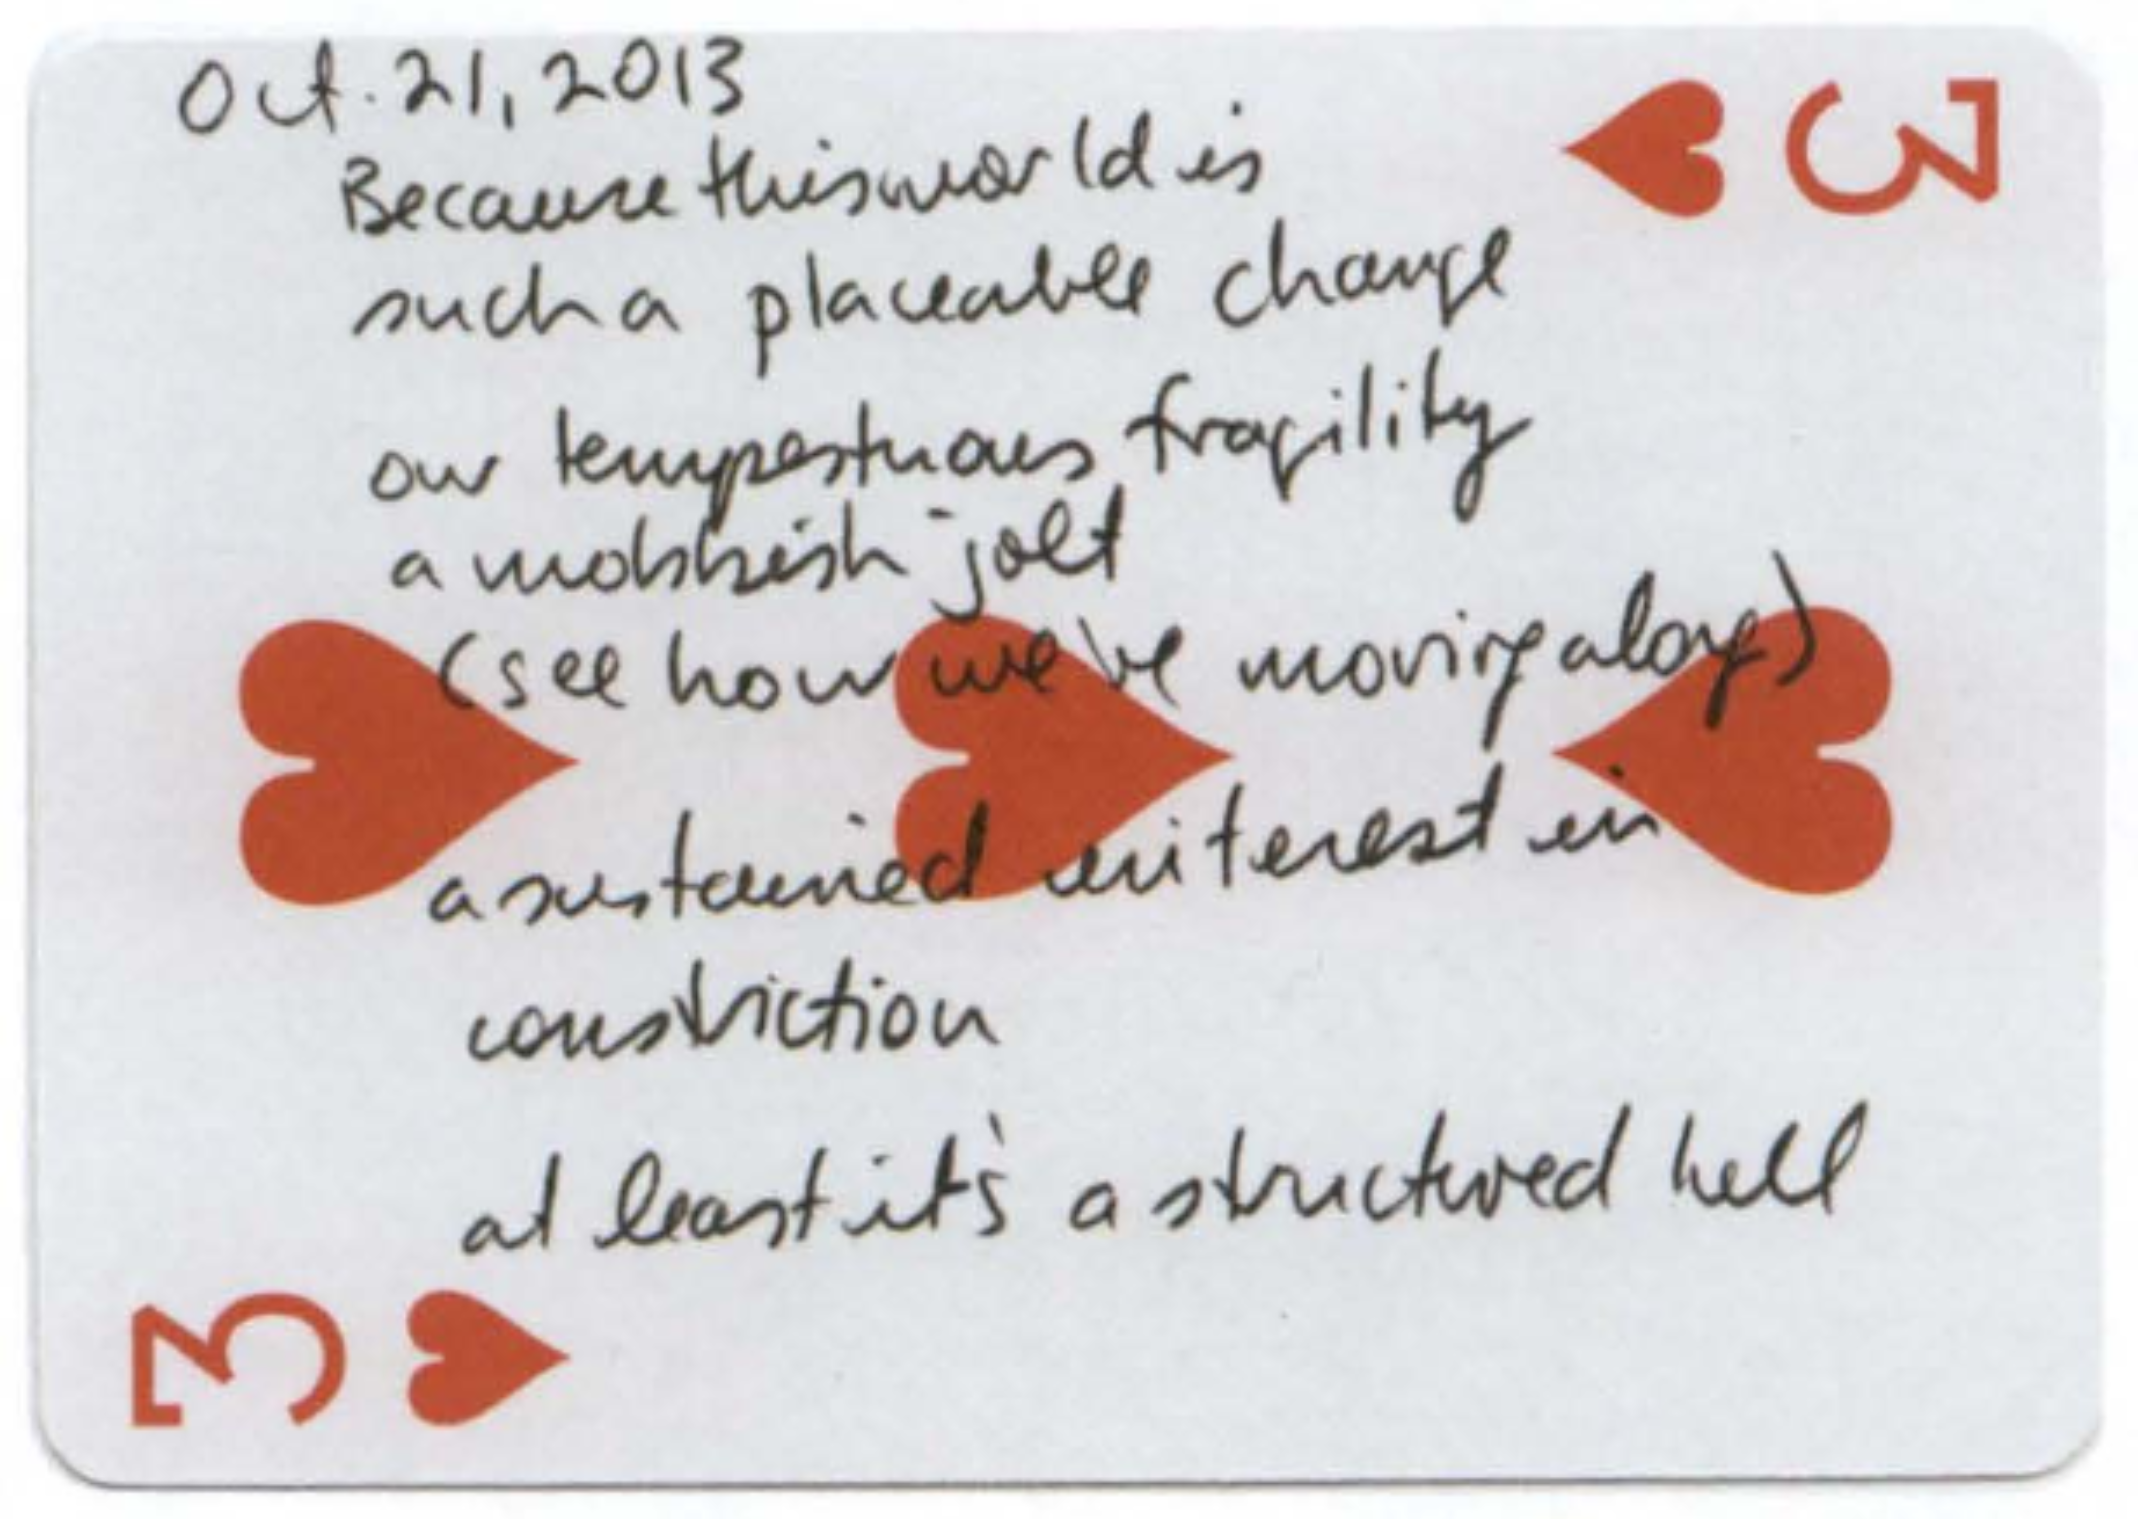 Oct. 21, 2013
3
Because this world is
such a placeable change
our tempestuous fragility
a mobbish jolt
(see how we've moving along)
a sustained interest in
constriction
at least it's a structured hell
3